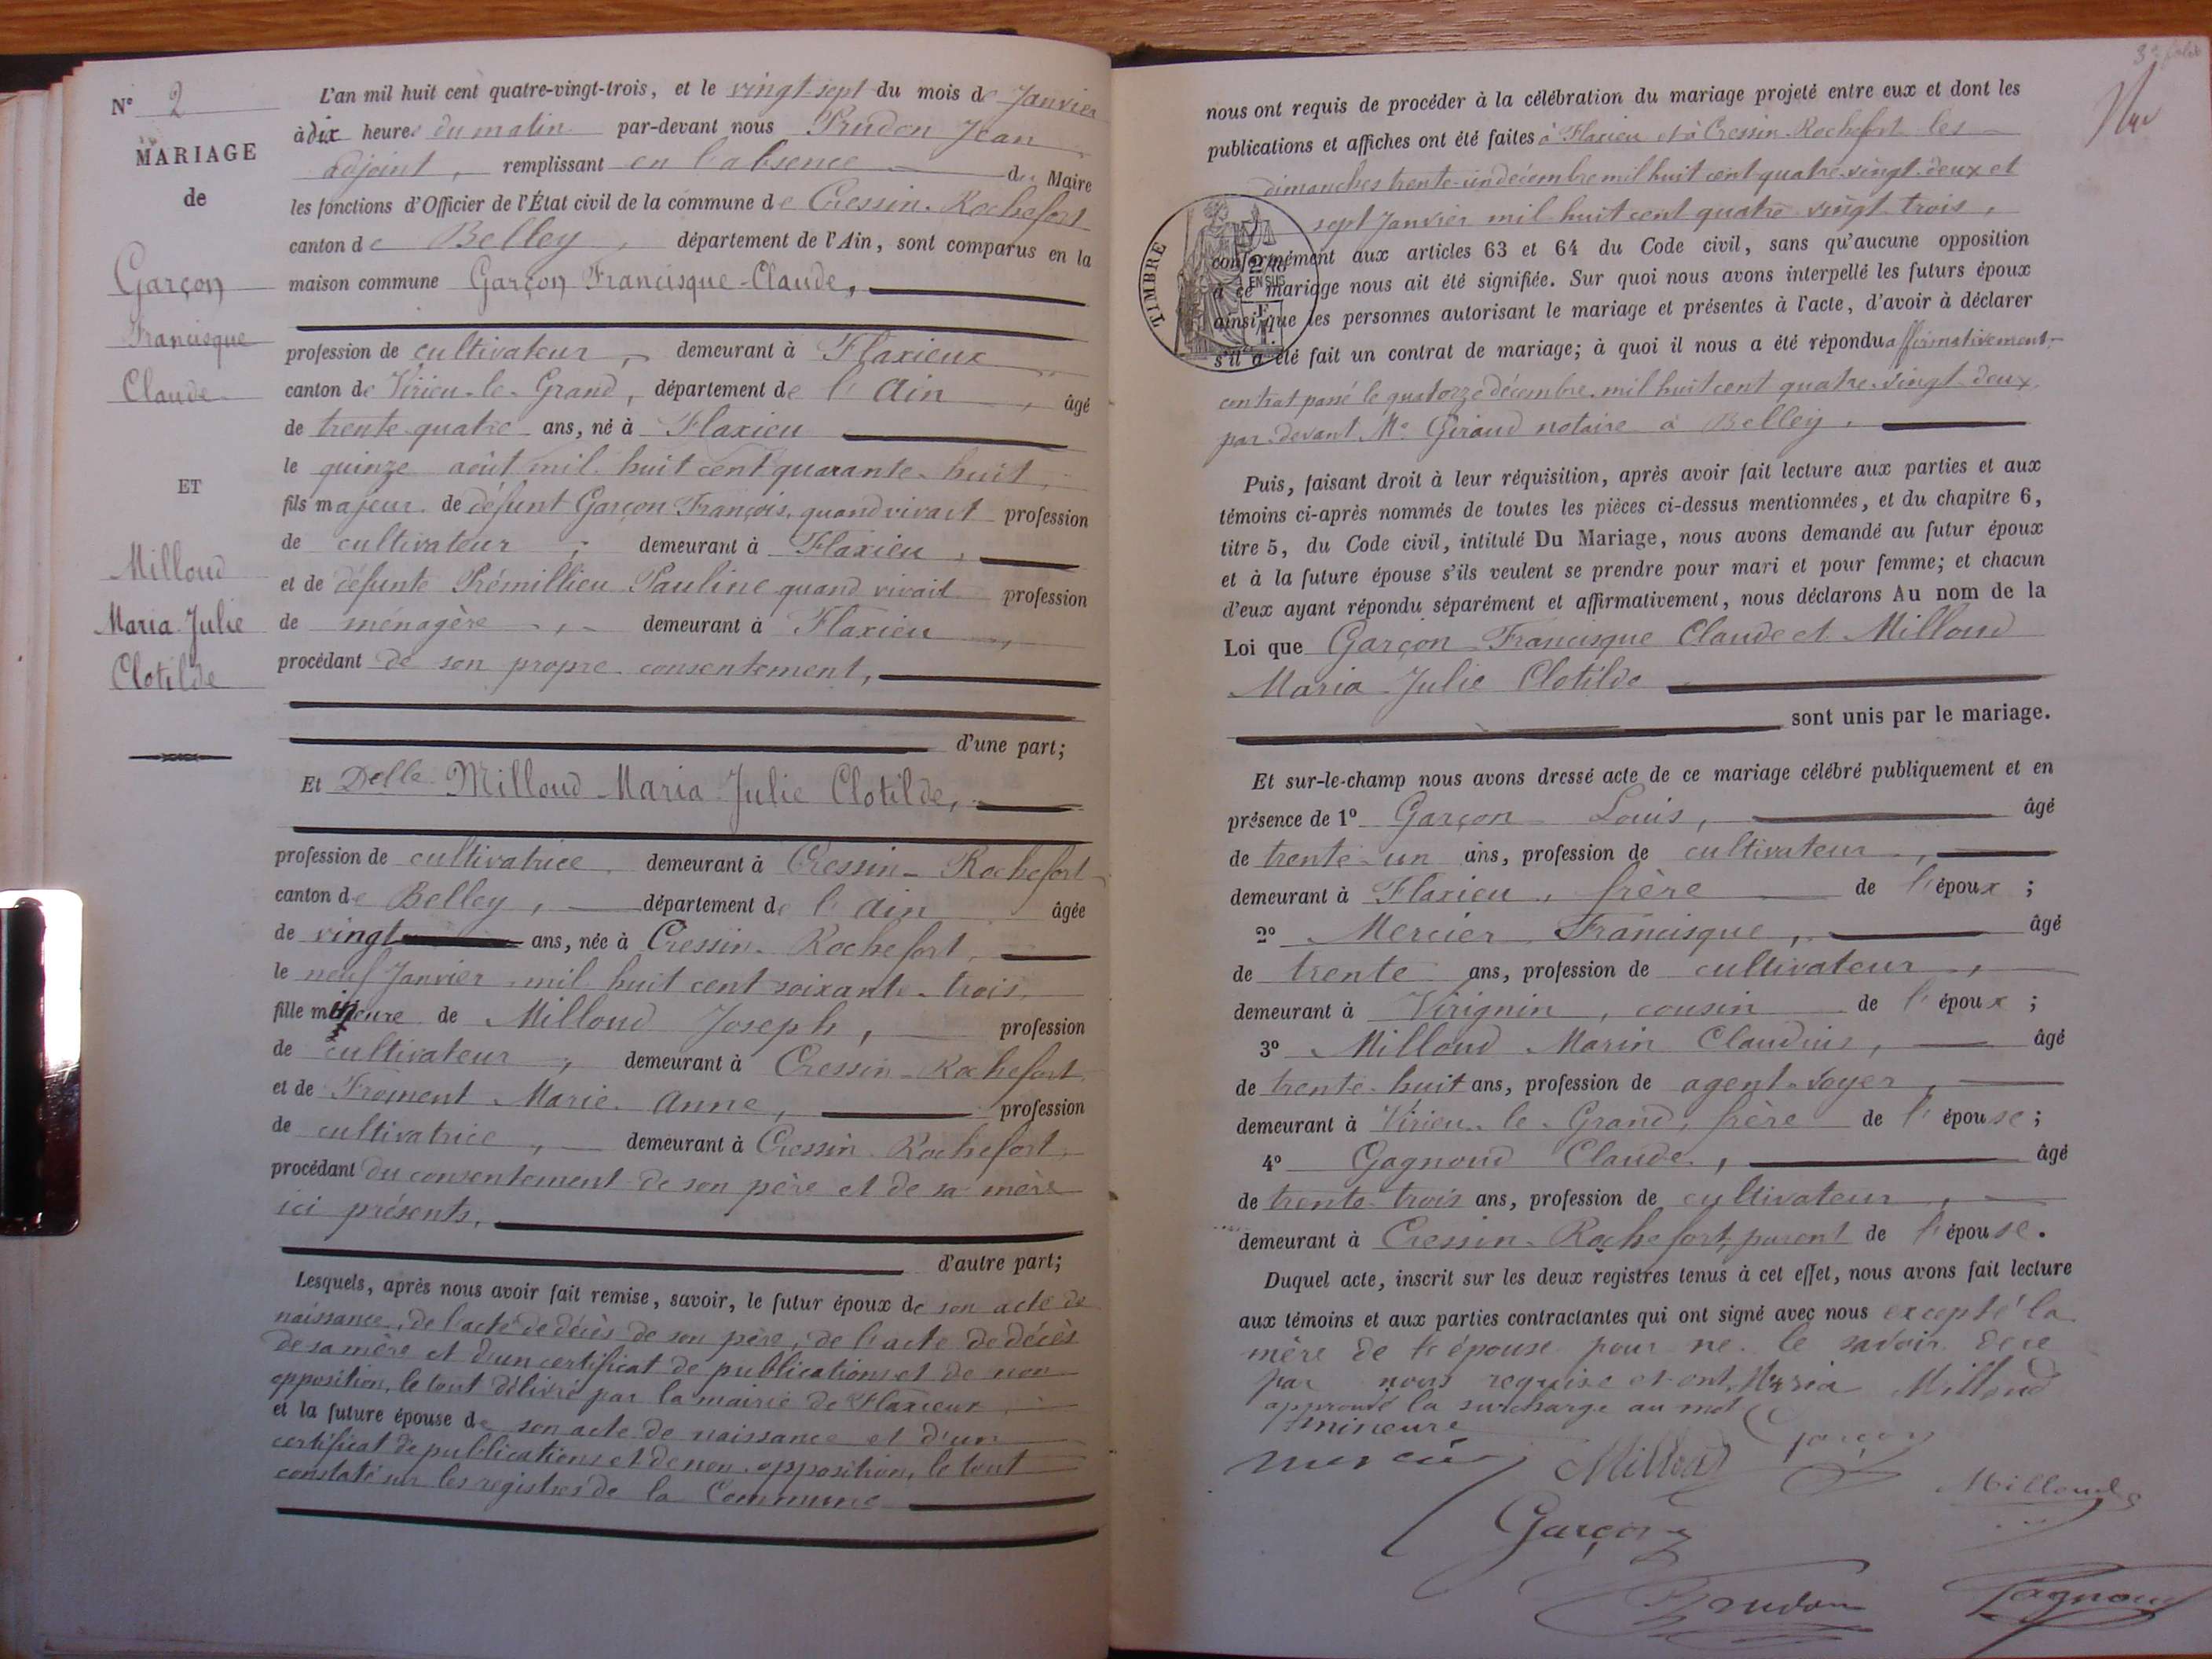 N° 2
MARIAGE
de
Garçon
Francisque
Claude
ET
Milloud
Maria Julie
Clotilde
L'an mil huit cent quatre-vingt-trois, et le vingt-sept du mois de Janvier
à dix heures du matin par-devant nous Prudon Jean
adjoint, remplissant en l'absence du Maire
les fonctions d'Officier de l'État civil de la commune de Cressin-Rochefort
canton de Belley, département de l'Ain, sont comparus en la
maison commune Garçon Francisque-Claude,
profession de cultivateur, demeurant à Flaxieux
canton de Virieu-le-Grand, département de l'Ain, âgé
de trente-quatre ans, né à Flaxieu
le quinze août mil huit cent quarante-huit,
fils majeur de défunt Garçon François, quand vivait profession
de cultivateur, demeurant à Flaxieu,
et de défunte Prémillieu Pauline quand vivait profession
de ménagère, demeurant à Flaxieu,
procédant de son propre consentement,
d'une part;
Et Delle Milloud Maria Julie Clotilde,
profession de cultivatrice demeurant à Cressin-Rochefort
canton de Belley, département de l'Ain âgée
de vingt ans, née à Cressin-Rochefort,
le neuf Janvier mil huit cent soixante-trois,
fille mineure de Milloud Joseph, profession
de cultivateur, demeurant à Cressin-Rochefort
et de Froment Marie Anne, profession
de cultivatrice, demeurant à Cressin-Rochefort,
procédant du consentement de son père et de sa mère
ici présents,
d'autre part;
Lesquels, après nous avoir fait remise, savoir, le futur époux de son acte de
naissance, de l'acte de décès de son père, de l'acte de décès
de sa mère et d'un certificat de publications et de non
opposition, le tout délivré par la mairie de Flaxieux,
et la future épouse de son acte de naissance et d'un
certificat de publications et de non opposition, le tout
constaté sur les registres de la Commune
3e folio
nous ont requis de procéder à la célébration du mariage projeté entre eux et dont les
publications et affiches ont été faites à Flaxieu et à Cressin-Rochefort les
dimanches trente-un décembre mil huit cent quatre-vingt-deux et
sept Janvier mil huit cent quatre-vingt-trois,
TIMBRE
EN SUS
conformément aux articles 63 et 64 du Code civil, sans qu'aucune opposition
à ce mariage nous ait été signifiée. Sur quoi nous avons interpellé les futurs époux
ainsi que les personnes autorisant le mariage et présentes à l'acte, d'avoir à déclarer
s'il a été fait un contrat de mariage; à quoi il nous a été répondu affirmativement
contrat passé le quatorze décembre mil huit cent quatre-vingt-deux
par-devant Me Giraud notaire à Belley.
Puis, faisant droit à leur réquisition, après avoir fait lecture aux parties et aux
témoins ci-après nommés de toutes les pièces ci-dessus mentionnées, et du chapitre 6,
titre 5, du Code civil, intitulé Du Mariage, nous avons demandé au futur époux
et à la future épouse s'ils veulent se prendre pour mari et pour femme; et chacun
d'eux ayant répondu séparément et affirmativement, nous déclarons Au nom de la
Loi que Garçon Francisque Claude et Milloud
Maria Julie Clotilde
sont unis par le mariage.
Et sur-le-champ nous avons dressé acte de ce mariage célébré publiquement et en
présence de 1° Garçon Louis, âgé
de trente-un ans, profession de cultivateur,
demeurant à Flaxieu, frère de l'époux;
2° Mercier Francisque, âgé
de trente ans, profession de cultivateur,
demeurant à Virignin, cousin de l'époux;
3° Milloud Marin Claudius, âgé
de trente-huit ans, profession de agent-voyer,
demeurant à Virieu-le-Grand, frère de l'épouse;
4° Gagnoud Claude, âgé
de trente-trois ans, profession de cultivateur,
demeurant à Cressin-Rochefort, parent de l'épouse.
Duquel acte, inscrit sur les deux registres tenus à cet effet, nous avons fait lecture
aux témoins et aux parties contractantes qui ont signé avec nous excepté la
mère de l'épouse pour ne le savoir de ce
par nous requise et ont Maria Milloud
approuvé la surcharge au mot
mineure
Garçon
Mercier Milloud Millouds
Garçon
Prudon Gagnoud